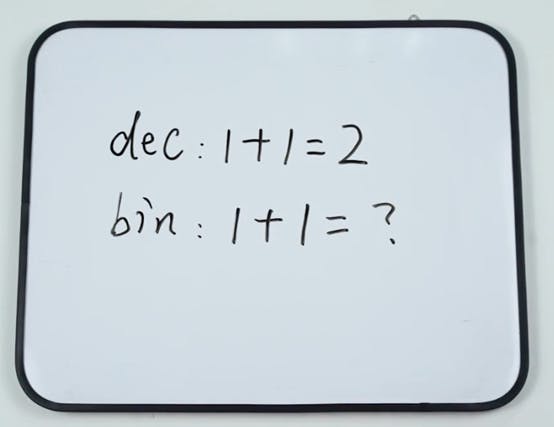 dec: 1+1=2
bin: 1+1=?